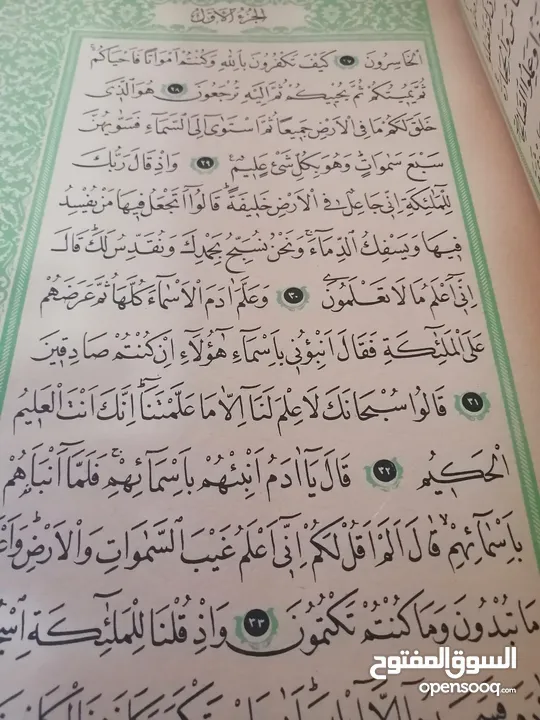 الجزء الاول
الخَاسِرُونَ ٢٧ كَيْفَ تَكْفُرُونَ بِاللّٰهِ وَكُنْتُمْ اَمْوَاتًا فَاَحْيَاكُمْ
ثُمَّ يُمِيتُكُمْ ثُمَّ يُحْيِيكُمْ ثُمَّ اِلَيْهِ تُرْجَعُونَ ٢٨ هُوَ الَّذِي
خَلَقَ لَكُمْ مَا فِي الْاَرْضِ جَمِيعًا ثُمَّ اسْتَوٰى اِلَى السَّمَاءِ فَسَوّٰيهُنَّ
سَبْعَ سَمٰوَاتٍ وَهُوَ بِكُلِّ شَيْءٍ عَلِيمٌ ٢٩ وَاِذْ قَالَ رَبُّكَ
لِلْمَلٰئِكَةِ اِنِّي جَاعِلٌ فِي الْاَرْضِ خَلِيفَةً قَالُوا اَتَجْعَلُ فِيهَا مَنْ يُفْسِدُ
فِيهَا وَيَسْفِكُ الدِّمَاءَ وَنَحْنُ نُسَبِّحُ بِحَمْدِكَ وَنُقَدِّسُ لَكَ قَالَ
اِنِّي اَعْلَمُ مَا لَا تَعْلَمُونَ ٣٠ وَعَلَّمَ اٰدَمَ الْاَسْمَاءَ كُلَّهَا ثُمَّ عَرَضَهُمْ
عَلَى الْمَلٰئِكَةِ فَقَالَ اَنْبِؤُنِي بِاَسْمَاءِ هٰؤُلَاءِ اِنْ كُنْتُمْ صَادِقِينَ
٣١ قَالُوا سُبْحَانَكَ لَا عِلْمَ لَنَا اِلَّا مَا عَلَّمْتَنَا اِنَّكَ اَنْتَ الْعَلِيمُ
الْحَكِيمُ ٣٢ قَالَ يَا اٰدَمُ اَنْبِئْهُمْ بِاَسْمَائِهِمْ فَلَمَّا اَنْبَاَهُمْ
بِاَسْمَائِهِمْ قَالَ اَلَمْ اَقُلْ لَكُمْ اِنِّي اَعْلَمُ غَيْبَ السَّمٰوَاتِ وَالْاَرْضِ
مَا تُبْدُونَ وَمَا كُنْتُمْ تَكْتُمُونَ ٣٣ وَاِذْ قُلْنَا لِلْمَلٰئِكَةِ
السوق المفتوح
opensooq.com